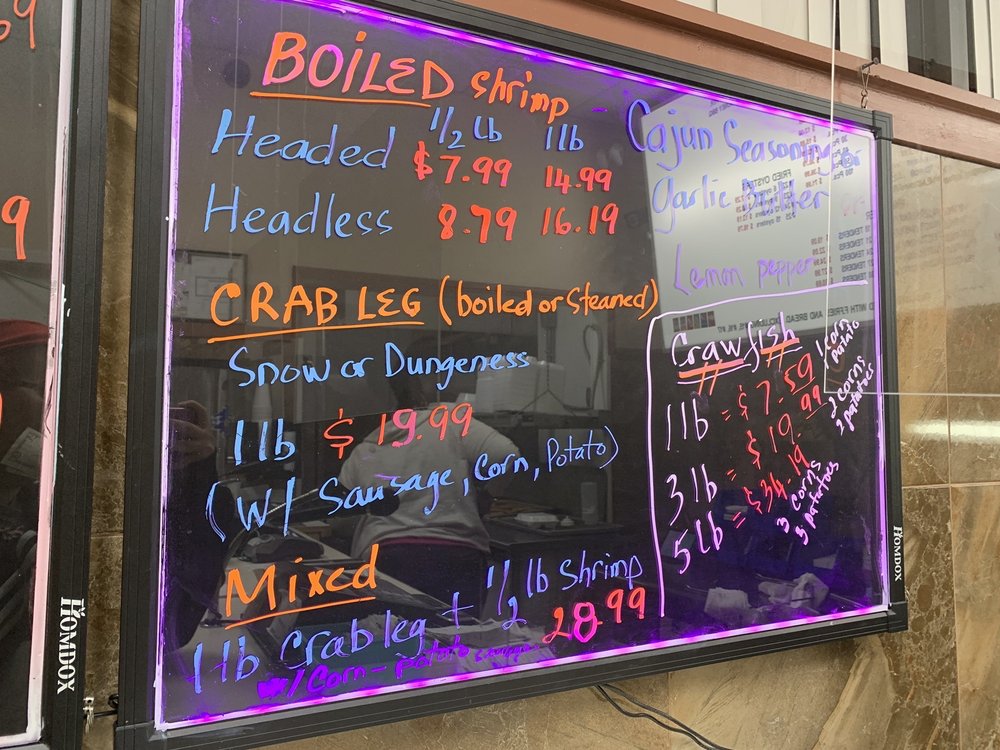 BOILED Shrimp
1/2 lb 1lb
Headed $7.99 14.99
Headless 8.79 16.19
Cajun Seasoning
Garlic Butter
Lemon pepper
CRAB LEG (boiled or Steaned)
Snow or Dungeness
1 lb $19.99
(W/ Sausage, Corn, Potato)
Mixed
1 lb Crab leg + 1/2 lb Shrimp 28.99
w/ Corn - potato
Crawfish
1 lb = $7.59 1 corn
1 potato
3 lb = $19.99 2 corns
2 potatoes
5 lb = $34.19
3 corns
3 potatoes
HOMDOX
HOMDOX
9